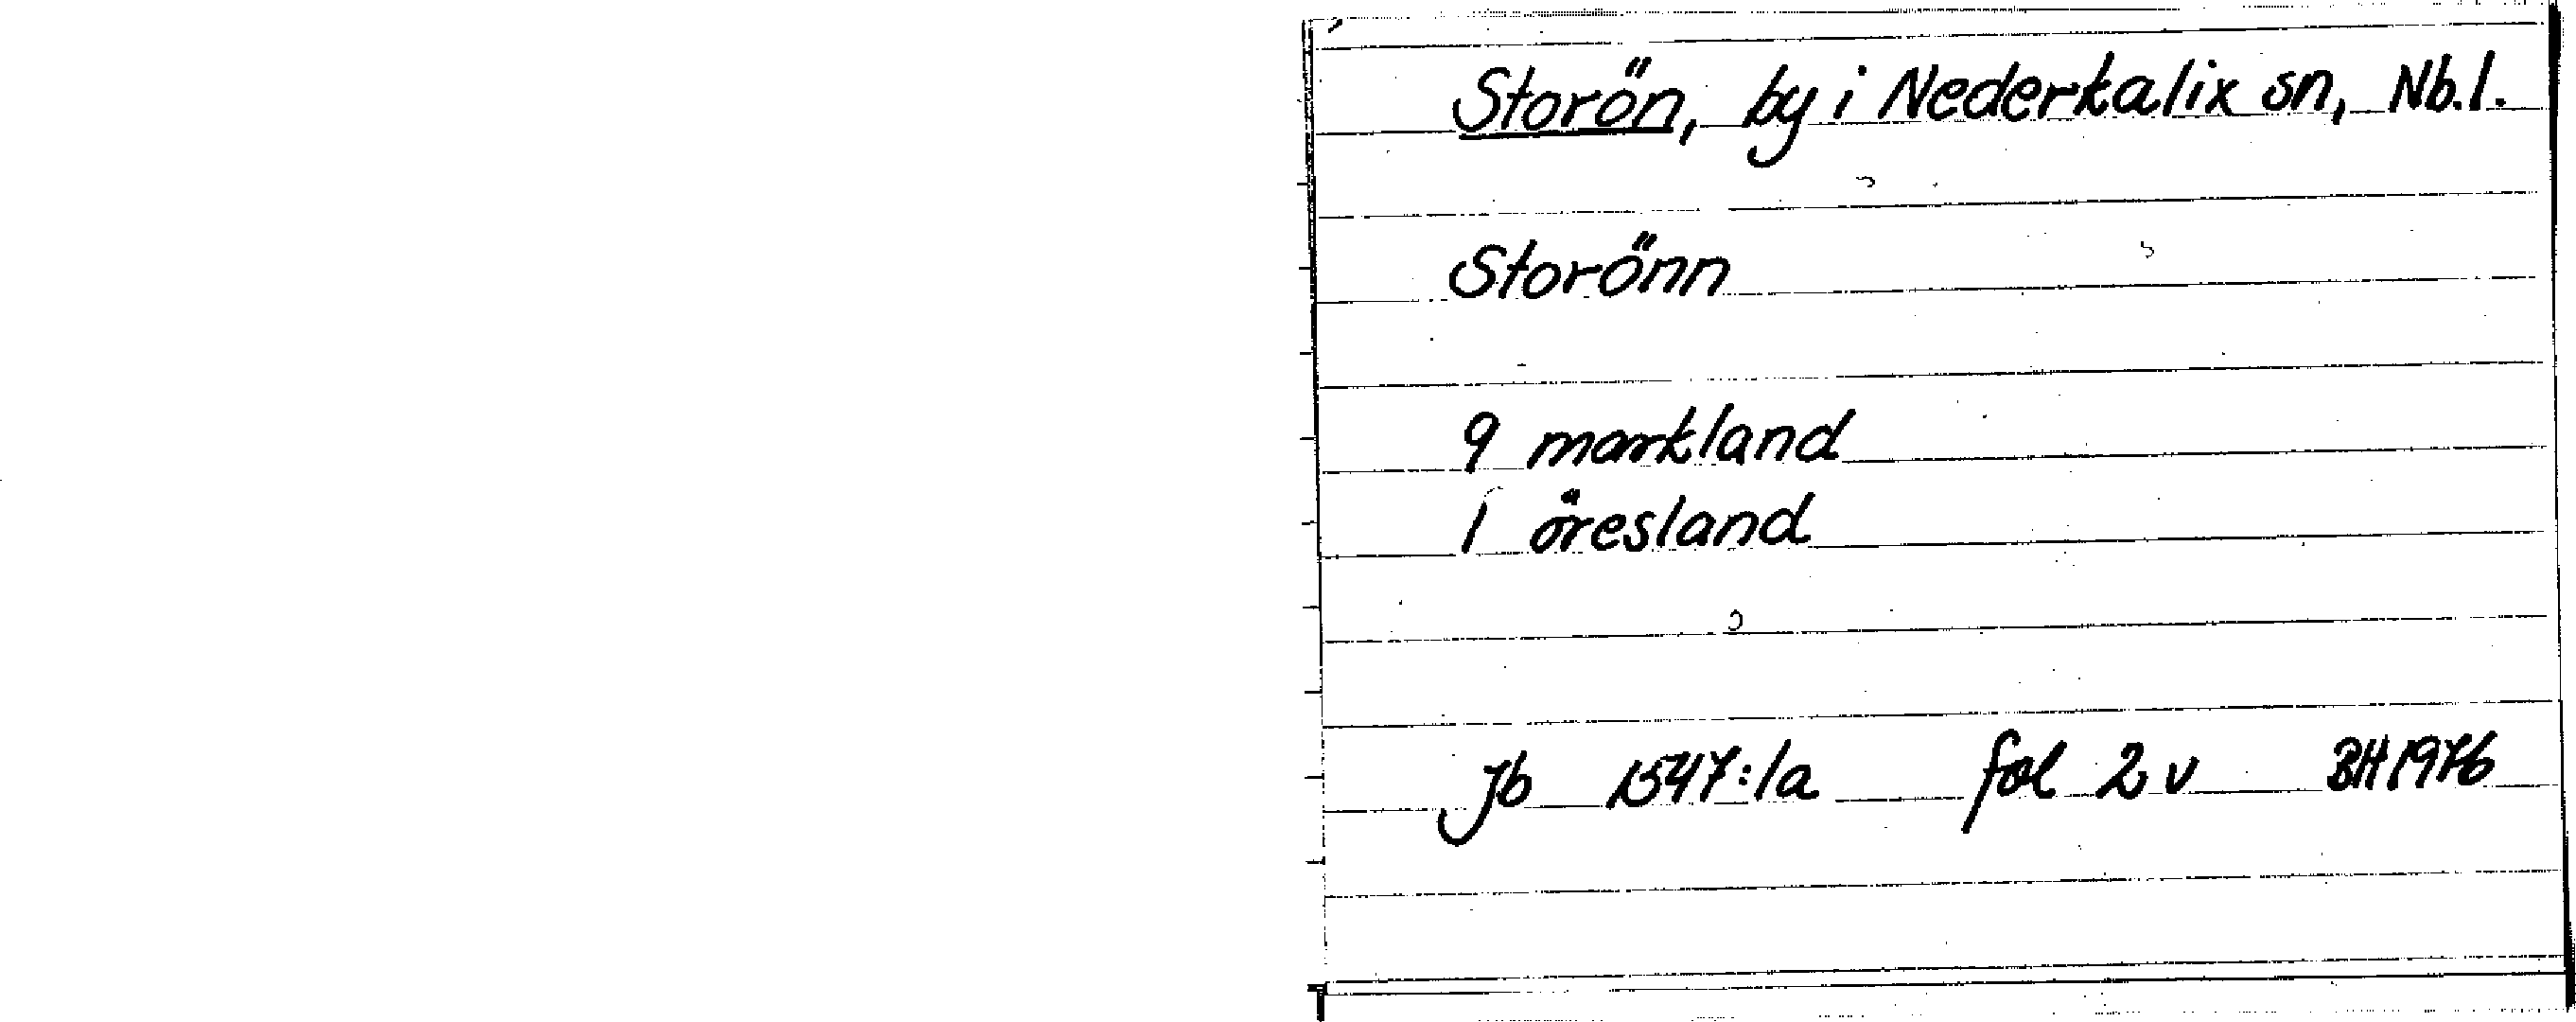 Storön, by i Nederkalix sn, Nb.l.
Storönn
9 markland
1 öresland
Jb 1547:1a fol 2 v BH 1976